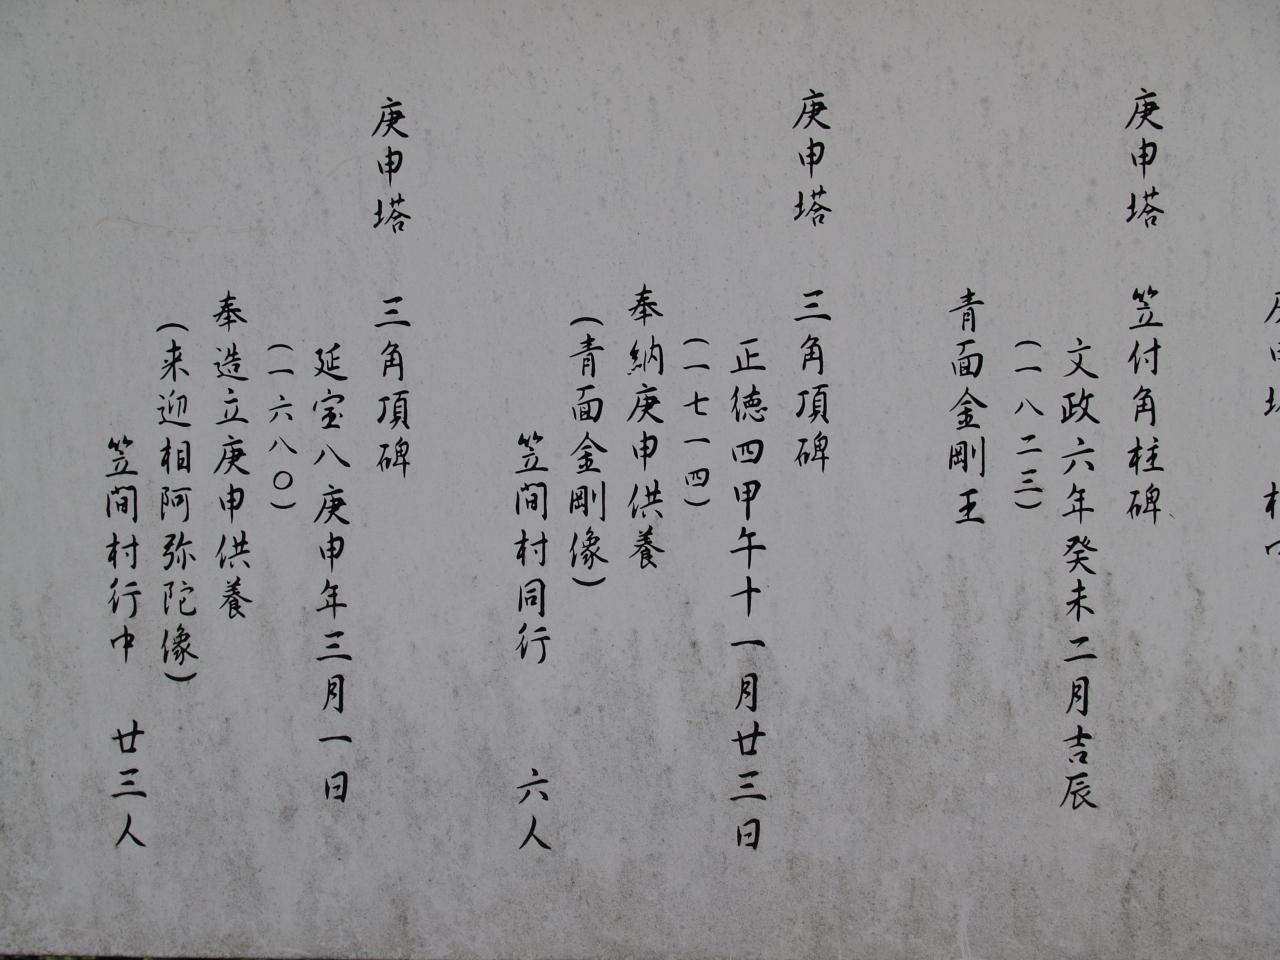 庚申塔　笠付角柱碑
文政六年癸未二月吉辰
(一八二三)
青面金剛王
庚申塔　三角頂碑
正徳四甲午十一月廿三日
(一七一四)
奉納庚申供養
(青面金剛像)
笠間村同行　六人
庚申塔　三角頂碑
延宝八庚申年三月一日
(一六八〇)
奉造立庚申供養
(来迎相阿弥陀像)
笠間村行中　廿三人